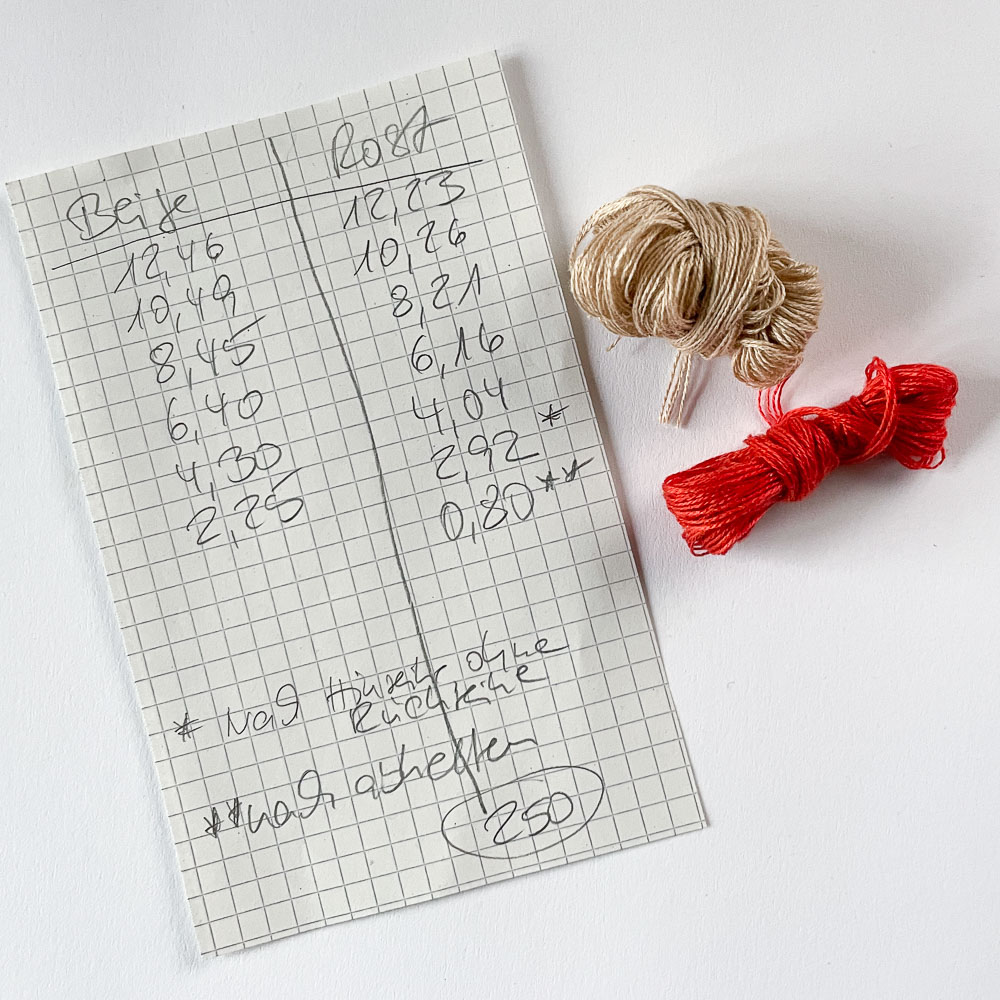 Beige Rost
12,46 12,23
10,49 10,26
8,45 8,21
6,40 6,16
4,30 4,04
2,25 2,92 *
0,80 **
* nach Hinreihe ohne
Rückreihe
** nach abketten
250